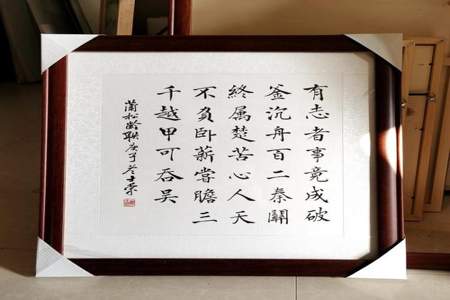 有志者事竟成破
釜沉舟百二秦關
終属楚苦心人天
不負卧薪嘗膽三
千越甲可吞吴
蒲松齡联庚子冬